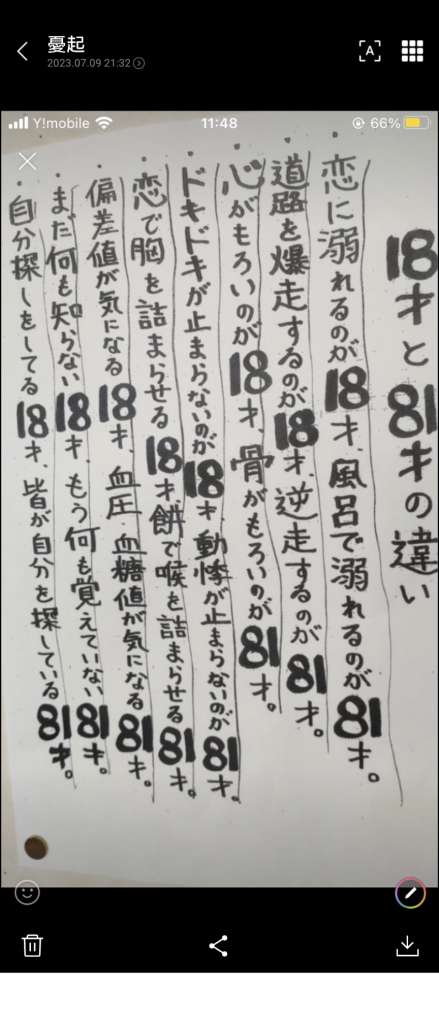 憂起
2023.07.09 21:32
Y!mobile 11:48 66%
18才と81才の違い
恋に溺れるのが18才、風呂で溺れるのが81才。
道路を爆走するのが18才、逆走するのが81才。
心がもろいのが18才、骨がもろいのが81才。
ドキドキが止まらないのが18才動悸が止まらないのが81才。
恋で胸を詰まらせる18才、餅で喉を詰まらせる81才。
偏差値が気になる18才、血圧・血糖値が気になる81才。
まだ何も知らない18才、もう何も覚えていない81才。
自分探しをしてる18才、皆が自分を探している81才。